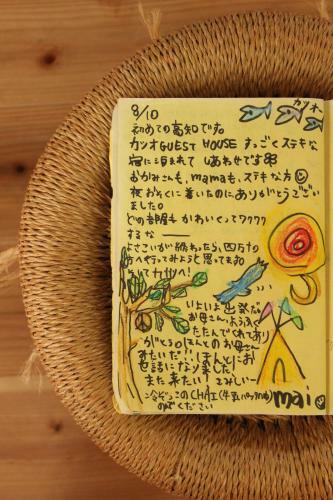 8/10
カツオ
初めての高知です。
カツオGUEST HOUSE すっごくステキな
宿に泊まれて しあわせです
おかみさんも、mamaも、ステキな方
夜おそくに着いたのに、ありがとうござい
ました。
どの部屋も かわいくってワクワク
するな ——
よさこいが終わったら、四万十の
方へ行ってみようと思ってます。
そして九州へ!
いよいよ出発だ。
お母さん、ようふく
たたんでくれてあり
がとう。ほんとのお母さん
みたいだ!! ほんとにお
世話になりました!
また来たい! さみしい〜
のぞください
mai